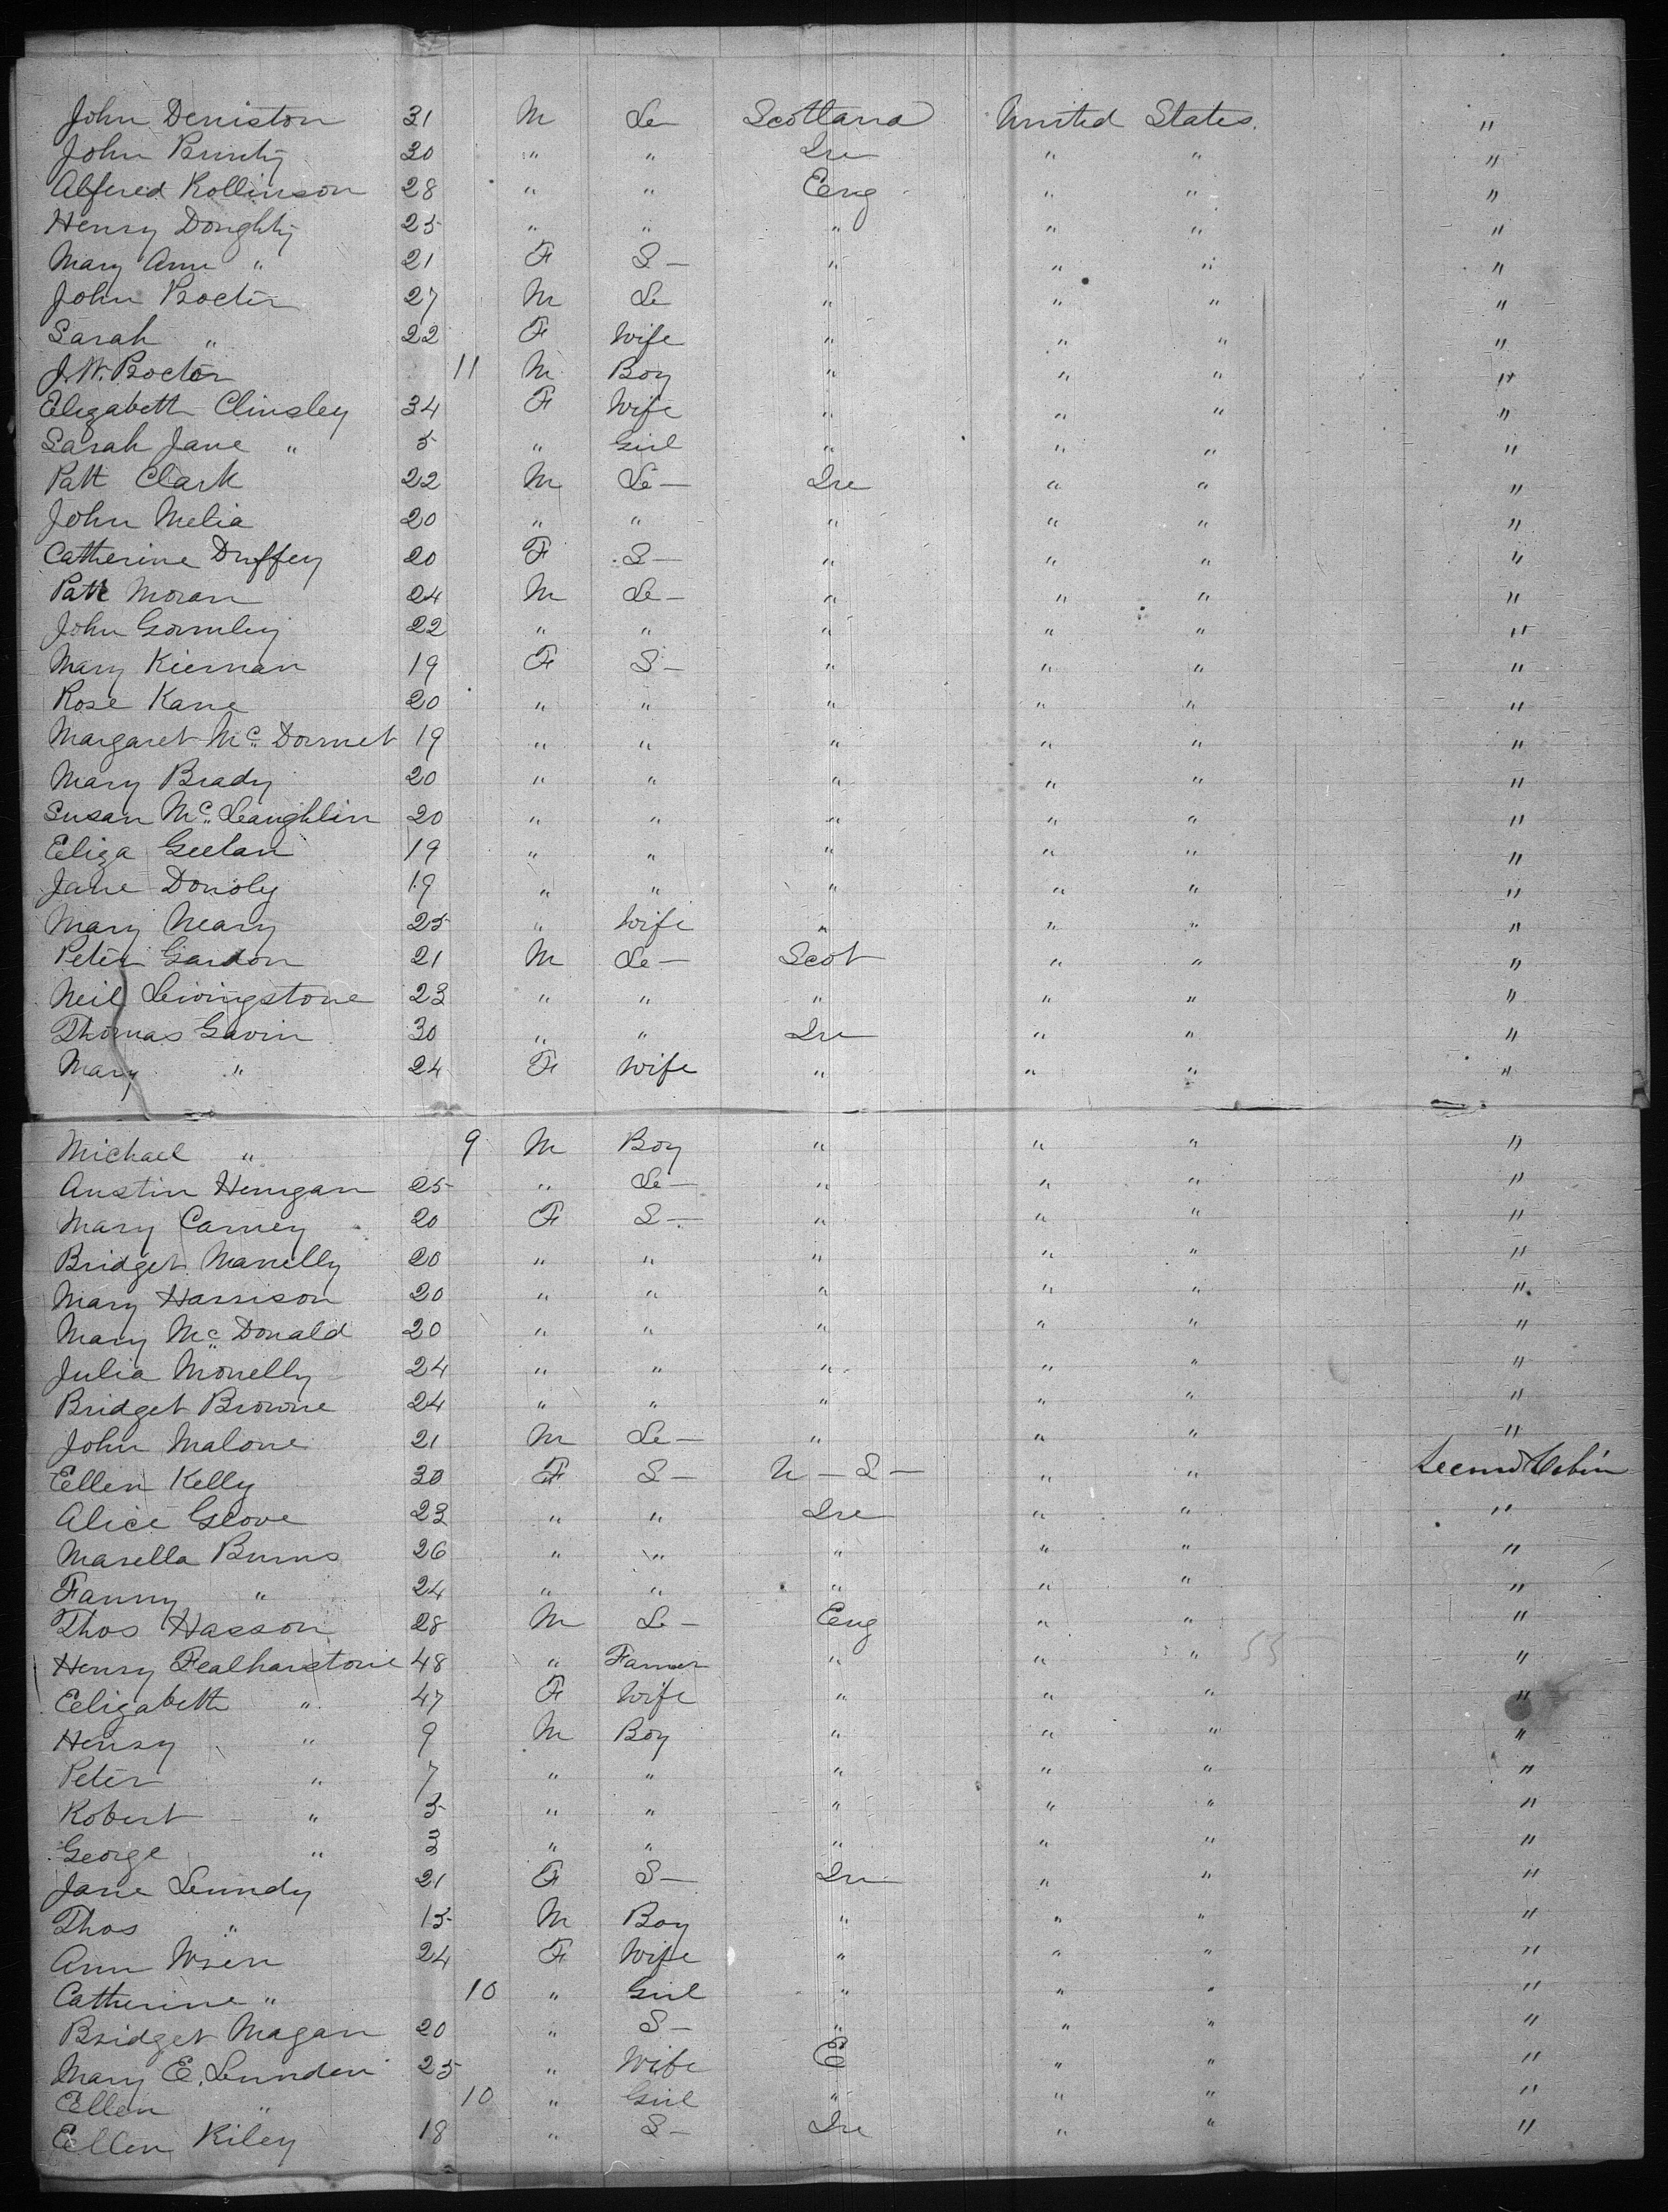 John Deniston 31 M La Scotland United States. "
John Brinty 30 " " Ire " " "
Alfred Rollinson 28 " " Eng " " "
Henry Doughty 25 " " " " " "
Mary Ann " 21 F S — " " " "
John Procter 27 M La " " " "
Sarah " 22 F Wife " " " "
J. W. Procter 11 M Boy " " " "
Elizabeth Clinsley 34 F Wife " " " "
Sarah Jane " 5 " Girl " " " "
Patt Clark 22 M La — Ire " " "
John Melia 20 " " " " " "
Catherine Duffey 20 F S — " " " "
Patk Moran 24 M La — " " " "
John Gormley 22 " " " " " "
Mary Kiernan 19 F S — " " " "
Rose Kane 20 " " " " " "
Margaret Mc Dormet 19 " " " " " "
Mary Brady 20 " " " " " "
Susan Mc Laughlin 20 " " " " " "
Eliza Geelan 19 " " " " " "
Jane Donoly 19 " " " " " "
Mary Neary 25 " Wife " " " "
Peter Gardon 21 M La — Scot " " "
Neil Livingstone 23 " " " " " "
Thomas Gavin 30 " " Ire " " "
Mary " 24 F Wife " " " "
Michael " 9 M Boy " " " "
Austin Henigan 25 " La — " " " "
Mary Carney 20 F S — " " " "
Bridget Nanelly 20 " " " " " "
Mary Harrison 20 " " " " " "
Mary Mc Donald 20 " " " " " "
Julia Monelly 24 " " " " " "
Bridget Browne 24 " " " " " "
John Malone 21 M La — " " " "
Ellen Kelly 30 F S — U — S — " " Second Cabin
Alice Glove 23 " " Ire " " "
Marella Burns 26 " " " " " "
Fanny " 24 " " " " " "
Thos Hasson 28 M La — Eng " " "
Henry Fealharstone 48 " Farmer " " " "
Elizabeth " 47 F Wife " " " "
Henry " 9 M Boy " " " "
Peter " 7 " " " " " "
Robert " 5 " " " " " "
George " 3 " " " " " "
Jane Lundy 21 F S — Ire " " "
Thos " 15 M Boy " " " "
Ann Wren 24 F Wife " " " "
Catherine " 10 " Girl " " " "
Bridget Magan 20 " S — " " " "
Mary E. Lunden 25 " Wife E " " "
Ellen " 10 " Girl " " " "
Ellen Riley 18 " S — Ire " " "